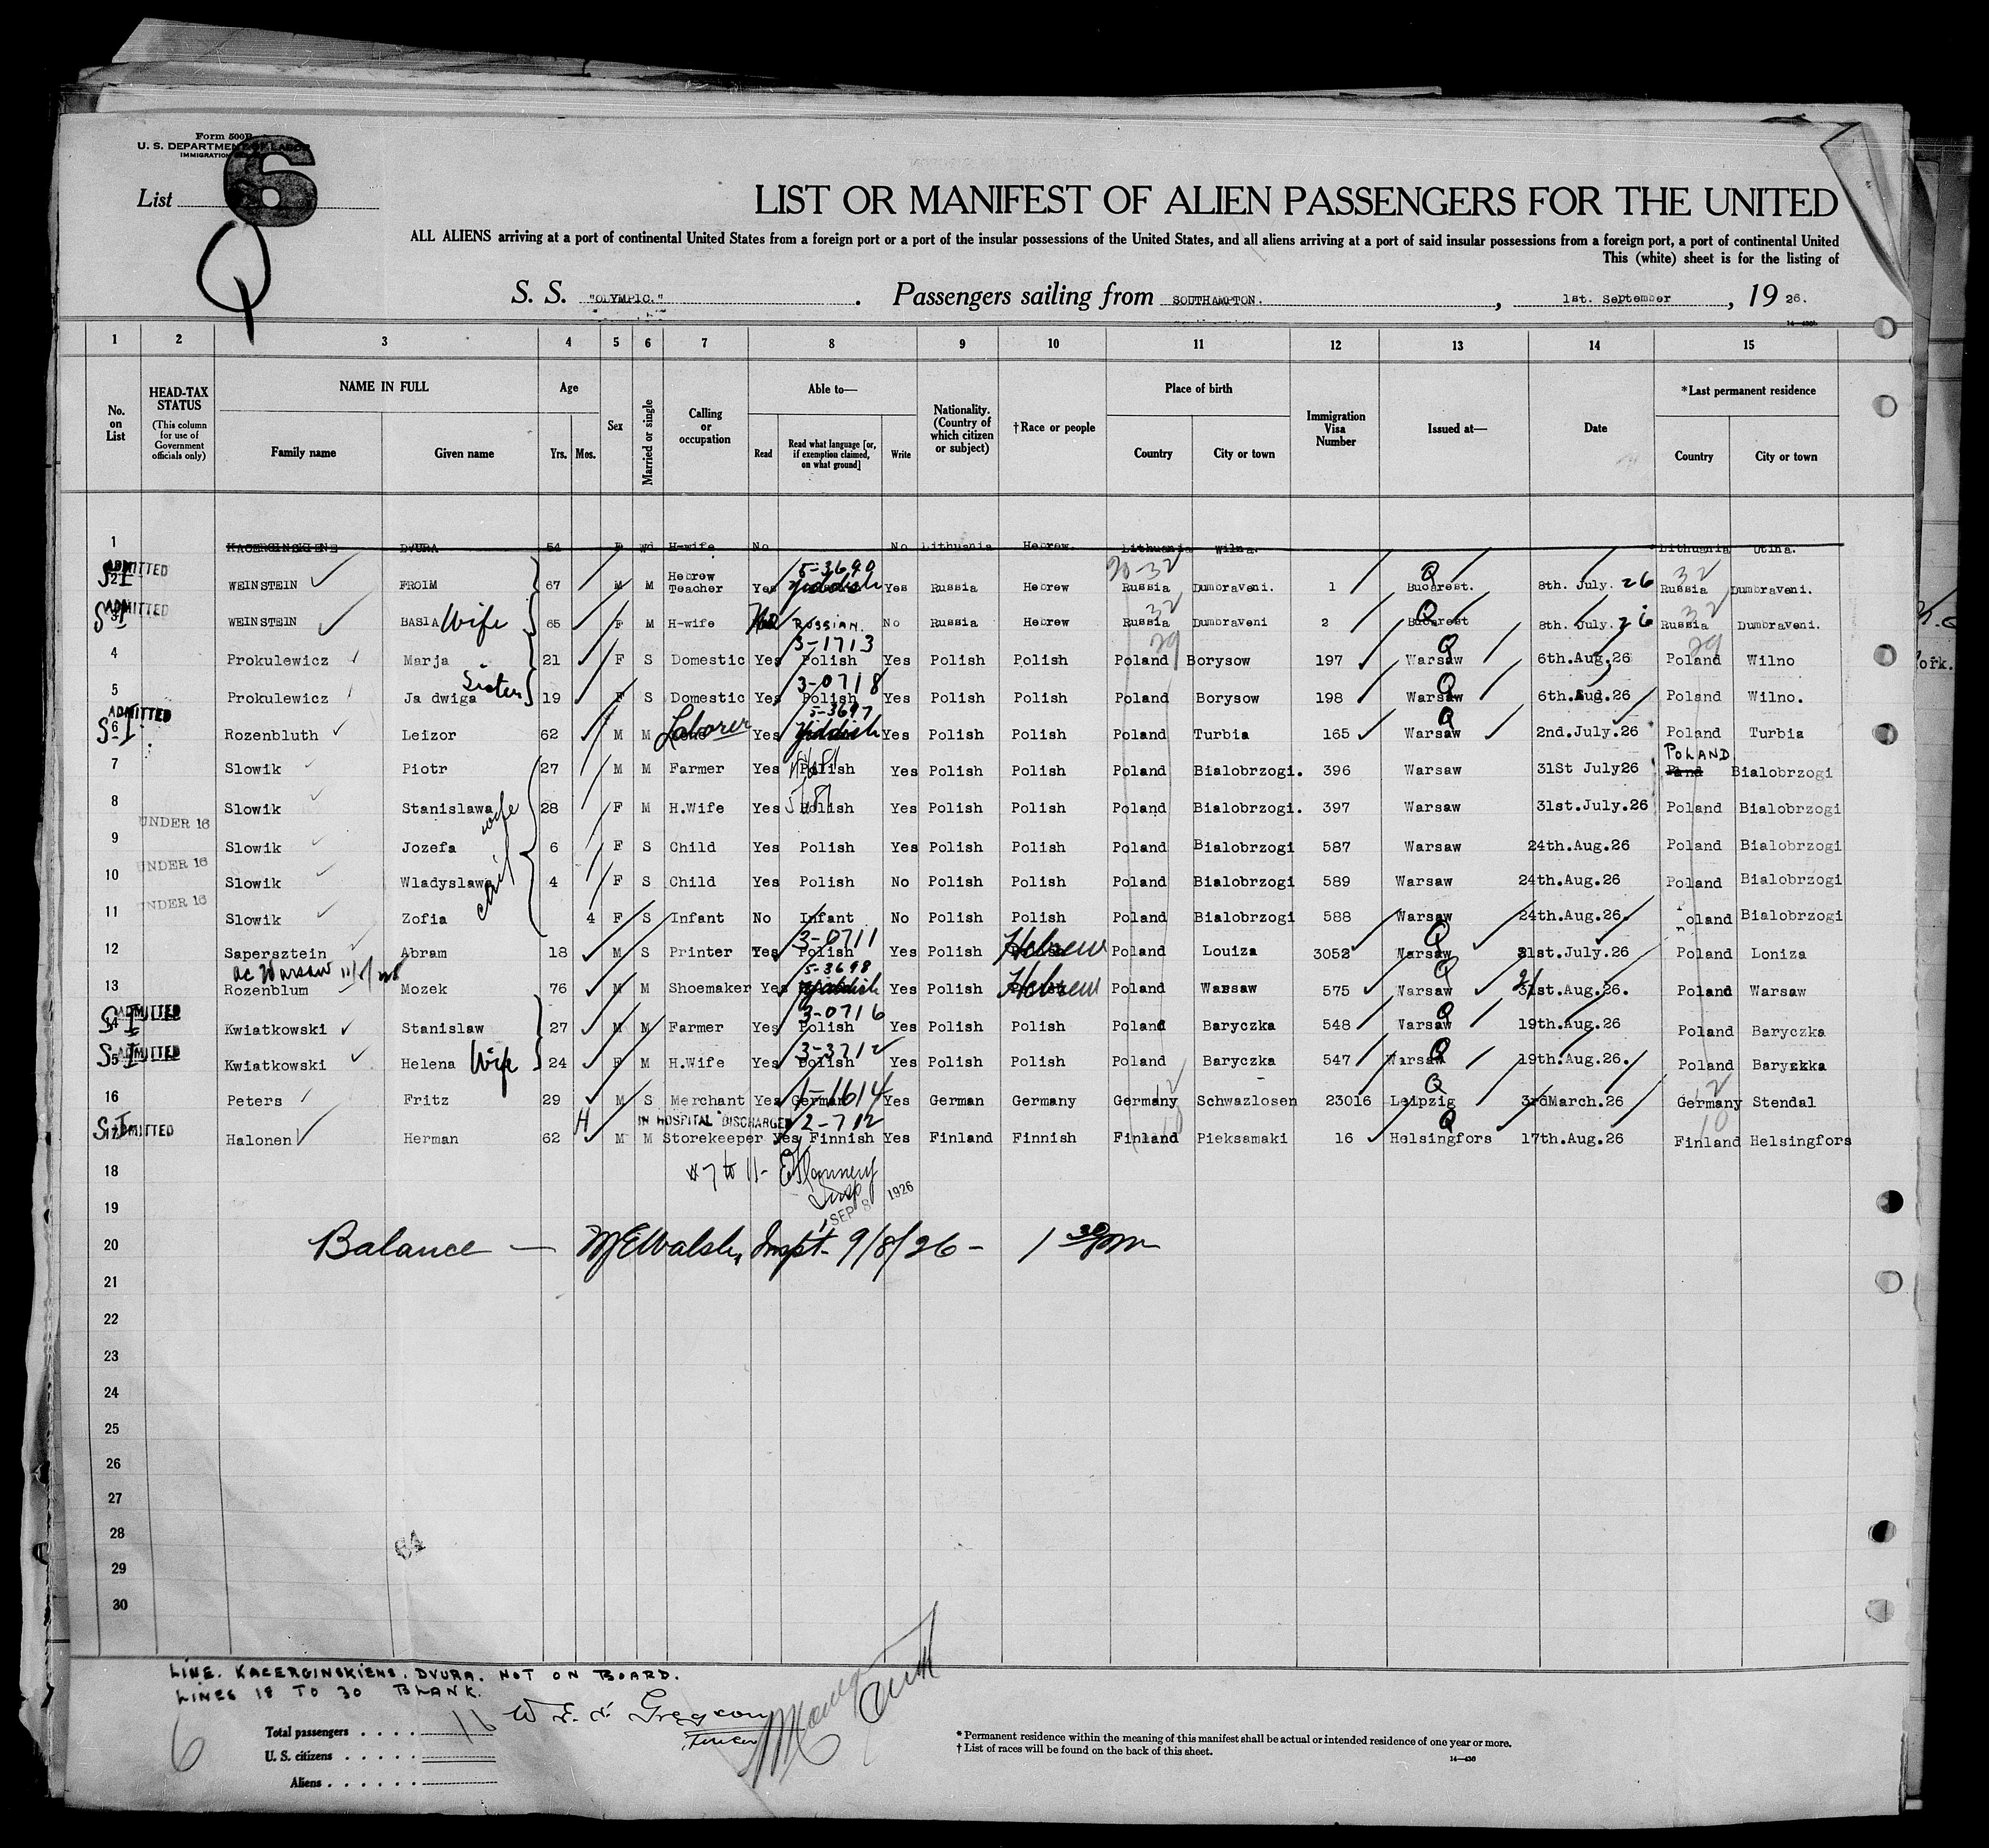 Form 500B
U. S. DEPARTMENT OF LABOR
IMMIGRATION
List 6
Q
LIST OR MANIFEST OF ALIEN PASSENGERS FOR THE UNITED
ALL ALIENS arriving at a port of continental United States from a foreign port or a port of the insular possessions of the United States, and all aliens arriving at a port of said insular possessions from a foreign port, a port of continental United
This (white) sheet is for the listing of
S. S. "OLYMPIC." . Passengers sailing from SOUTHAMPTON. , 1st. September , 19 26.
1 2 3 4 5 6 7 8 9 10 11 12 13 14 15
No. on List HEAD-TAX STATUS (This column for use of Government officials only) NAME IN FULL Family name Given name Age Yrs. Mos. Sex Married or single Calling or occupation Able to— Read Read what language [or, if exemption claimed, on what ground] Write Nationality. (Country of which citizen or subject) †Race or people Place of birth Country City or town Immigration Visa Number Issued at— Date *Last permanent residence Country City or town
1 KACERGINSKIENE DVURA 54 F Wd H-wife No No Lithuania Hebrew. Lithuania Wilna. Lithuania Utina.
ADMITTED 5-3690 20-32 Q 32
SI 2 WEINSTEIN FROIM 67 M M Hebrew Teacher Yes Yiddish Yes Russia Hebrew Russia Dumbraveni. 1 Bucarest. 8th. July. 26 Russia Dumbraveni.
ADMITTED 32 Q 32
SI 3 WEINSTEIN BASIA Wife 65 F M H-wife No RUSSIAN. No Russia Hebrew Russia Dumbraveni 2 Bucarest 8th. July. 26 Russia Dumbraveni.
3-1713 29 Q 29
4 Prokulewicz Marja 21 F S Domestic Yes Polish Yes Polish Polish Poland Borysow 197 Warsaw 6th.Aug.26 Poland Wilno
3-0718 Q
5 Prokulewicz Ja dwiga Sister 19 F S Domestic Yes Polish Yes Polish Polish Poland Borysow 198 Warsaw 6th.Aug.26 Poland Wilno.
ADMITTED 5-3697 Q
SI 6 Rozenbluth Leizor 62 M M Laborer Yes Yiddish Yes Polish Polish Poland Turbia 165 Warsaw 2nd.July.26 Poland Turbia
7 Slowik Piotr 27 M M Farmer Yes Polish Yes Polish Polish Poland Bialobrzogi. 396 Warsaw 31St July26 POLAND Bialobrzogi
8 Slowik Stanislawa wife 28 F M H.Wife Yes Polish Yes Polish Polish Poland Bialobrzogi. 397 Warsaw 31st.July.26 Poland Bialobrzogi
UNDER 16
9 Slowik Jozefa 6 F S Child Yes Polish Yes Polish Polish Poland Bialobrzogi 587 Warsaw 24th.Aug.26 Poland Bialobrzogi
UNDER 16
10 Slowik Wladyslawa 4 F S Child Yes Polish No Polish Polish Poland Bialobrzogi 589 Warsaw 24th.Aug.26 Poland Bialobrzogi
UNDER 16
11 Slowik Zofia 4 F S Infant No Infant No Polish Polish Poland Bialobrzogi 588 Warsaw 24th.Aug.26. Poland Bialobrzogi
3-0711 Q
12 Sapersztein Abram 18 M S Printer Yes Polish Yes Polish Hebrew Poland Louiza 3052 Warsaw 31st.July.26 Poland Loniza
ac Warsaw 5-3698 Q
13 Rozenblum Mozek 76 M M Shoemaker Yes Yiddish Yes Polish Hebrew Poland Warsaw 575 Warsaw 21st.Aug.26. Poland Warsaw
ADMITTED 3-0716 Q
SI 14 Kwiatkowski Stanislaw 27 M M Farmer Yes Polish Yes Polish Polish Poland Baryczka 548 Warsaw 19th.Aug.26 Poland Baryczka
ADMITTED 3-3712 Q
SI 15 Kwiatkowski Helena Wife 24 F M H.Wife Yes Polish Yes Polish Polish Poland Baryczka 547 Warsaw 19th.Aug.26. Poland Baryczkka
1-1614 12 Q 12
16 Peters Fritz 29 M S Merchant Yes German Yes German Germany Germany Schwazlosen 23016 Leipzig 3rdMarch.26 Germany Stendal
ADMITTED H IN HOSPITAL DISCHARGED 2-712 10 Q 10
SI 17 Halonen Herman 62 M M Storekeeper Yes Finnish Yes Finland Finnish Finland Pieksamaki 16 Helsingfors 17th.Aug.26 Finland Helsingfors
18 # 7 to 11- E Flannery
Insp
19 SEP 8 1926
20 Balance — M E Walsh, Inspt- 9/8/26 - 1 30 pm
21
22
23
24
25
26
27
28
64
29
30
LINE. KACERGINSKIENE. DVURA. NOT ON BOARD.
LINES 18 TO 30 BLANK.
6
Total passengers . . . . 16
U. S. citizens . . . . .
Aliens . . . . . .
*Permanent residence within the meaning of this manifest shall be actual or intended residence of one year or more.
†List of races will be found on the back of this sheet.
14—430